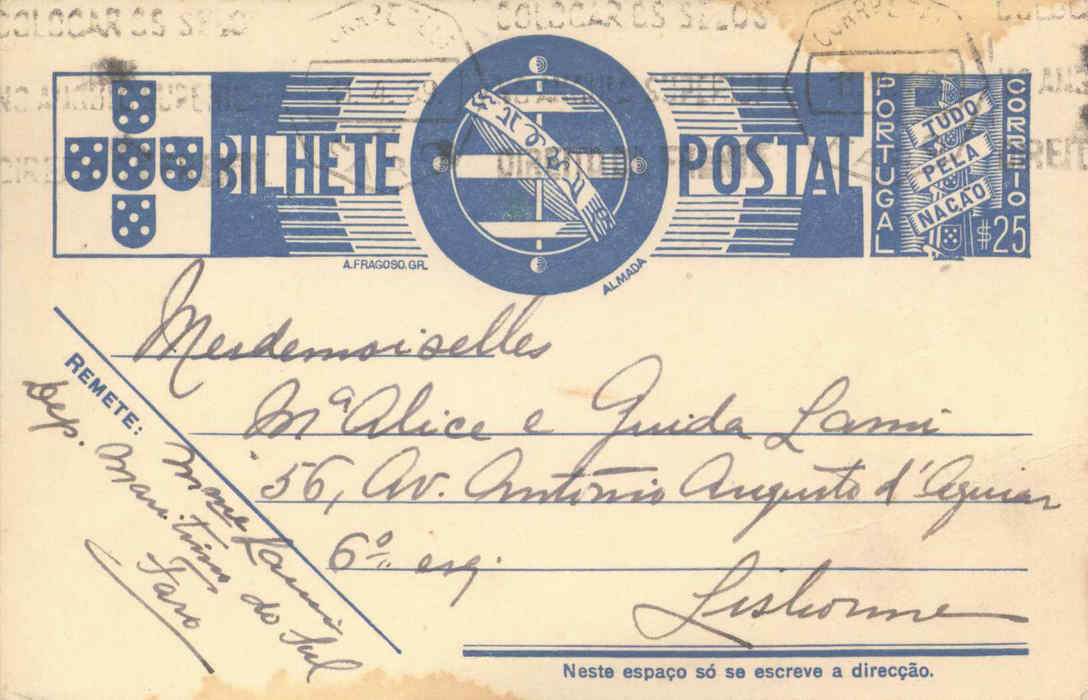 COLOCAR OS SELOS
NO ANGULO SUPERIOR
DIREITO DA FRENTE
BILHETE POSTAL
PORTUGAL
CORREIO
TUDO
PELA
NAÇÃO
$25
A. FRAGOSO, GR.
ALMADA
Mesdemoiselles
Mª Alice e Guida Lami
56, Av. António Augusto d'Aguiar
6º esq.
Lisbonne
REMETE: Mme Lami
Dep. Maritimo do Sul
Faro
Neste espaço só se escreve a direcção.